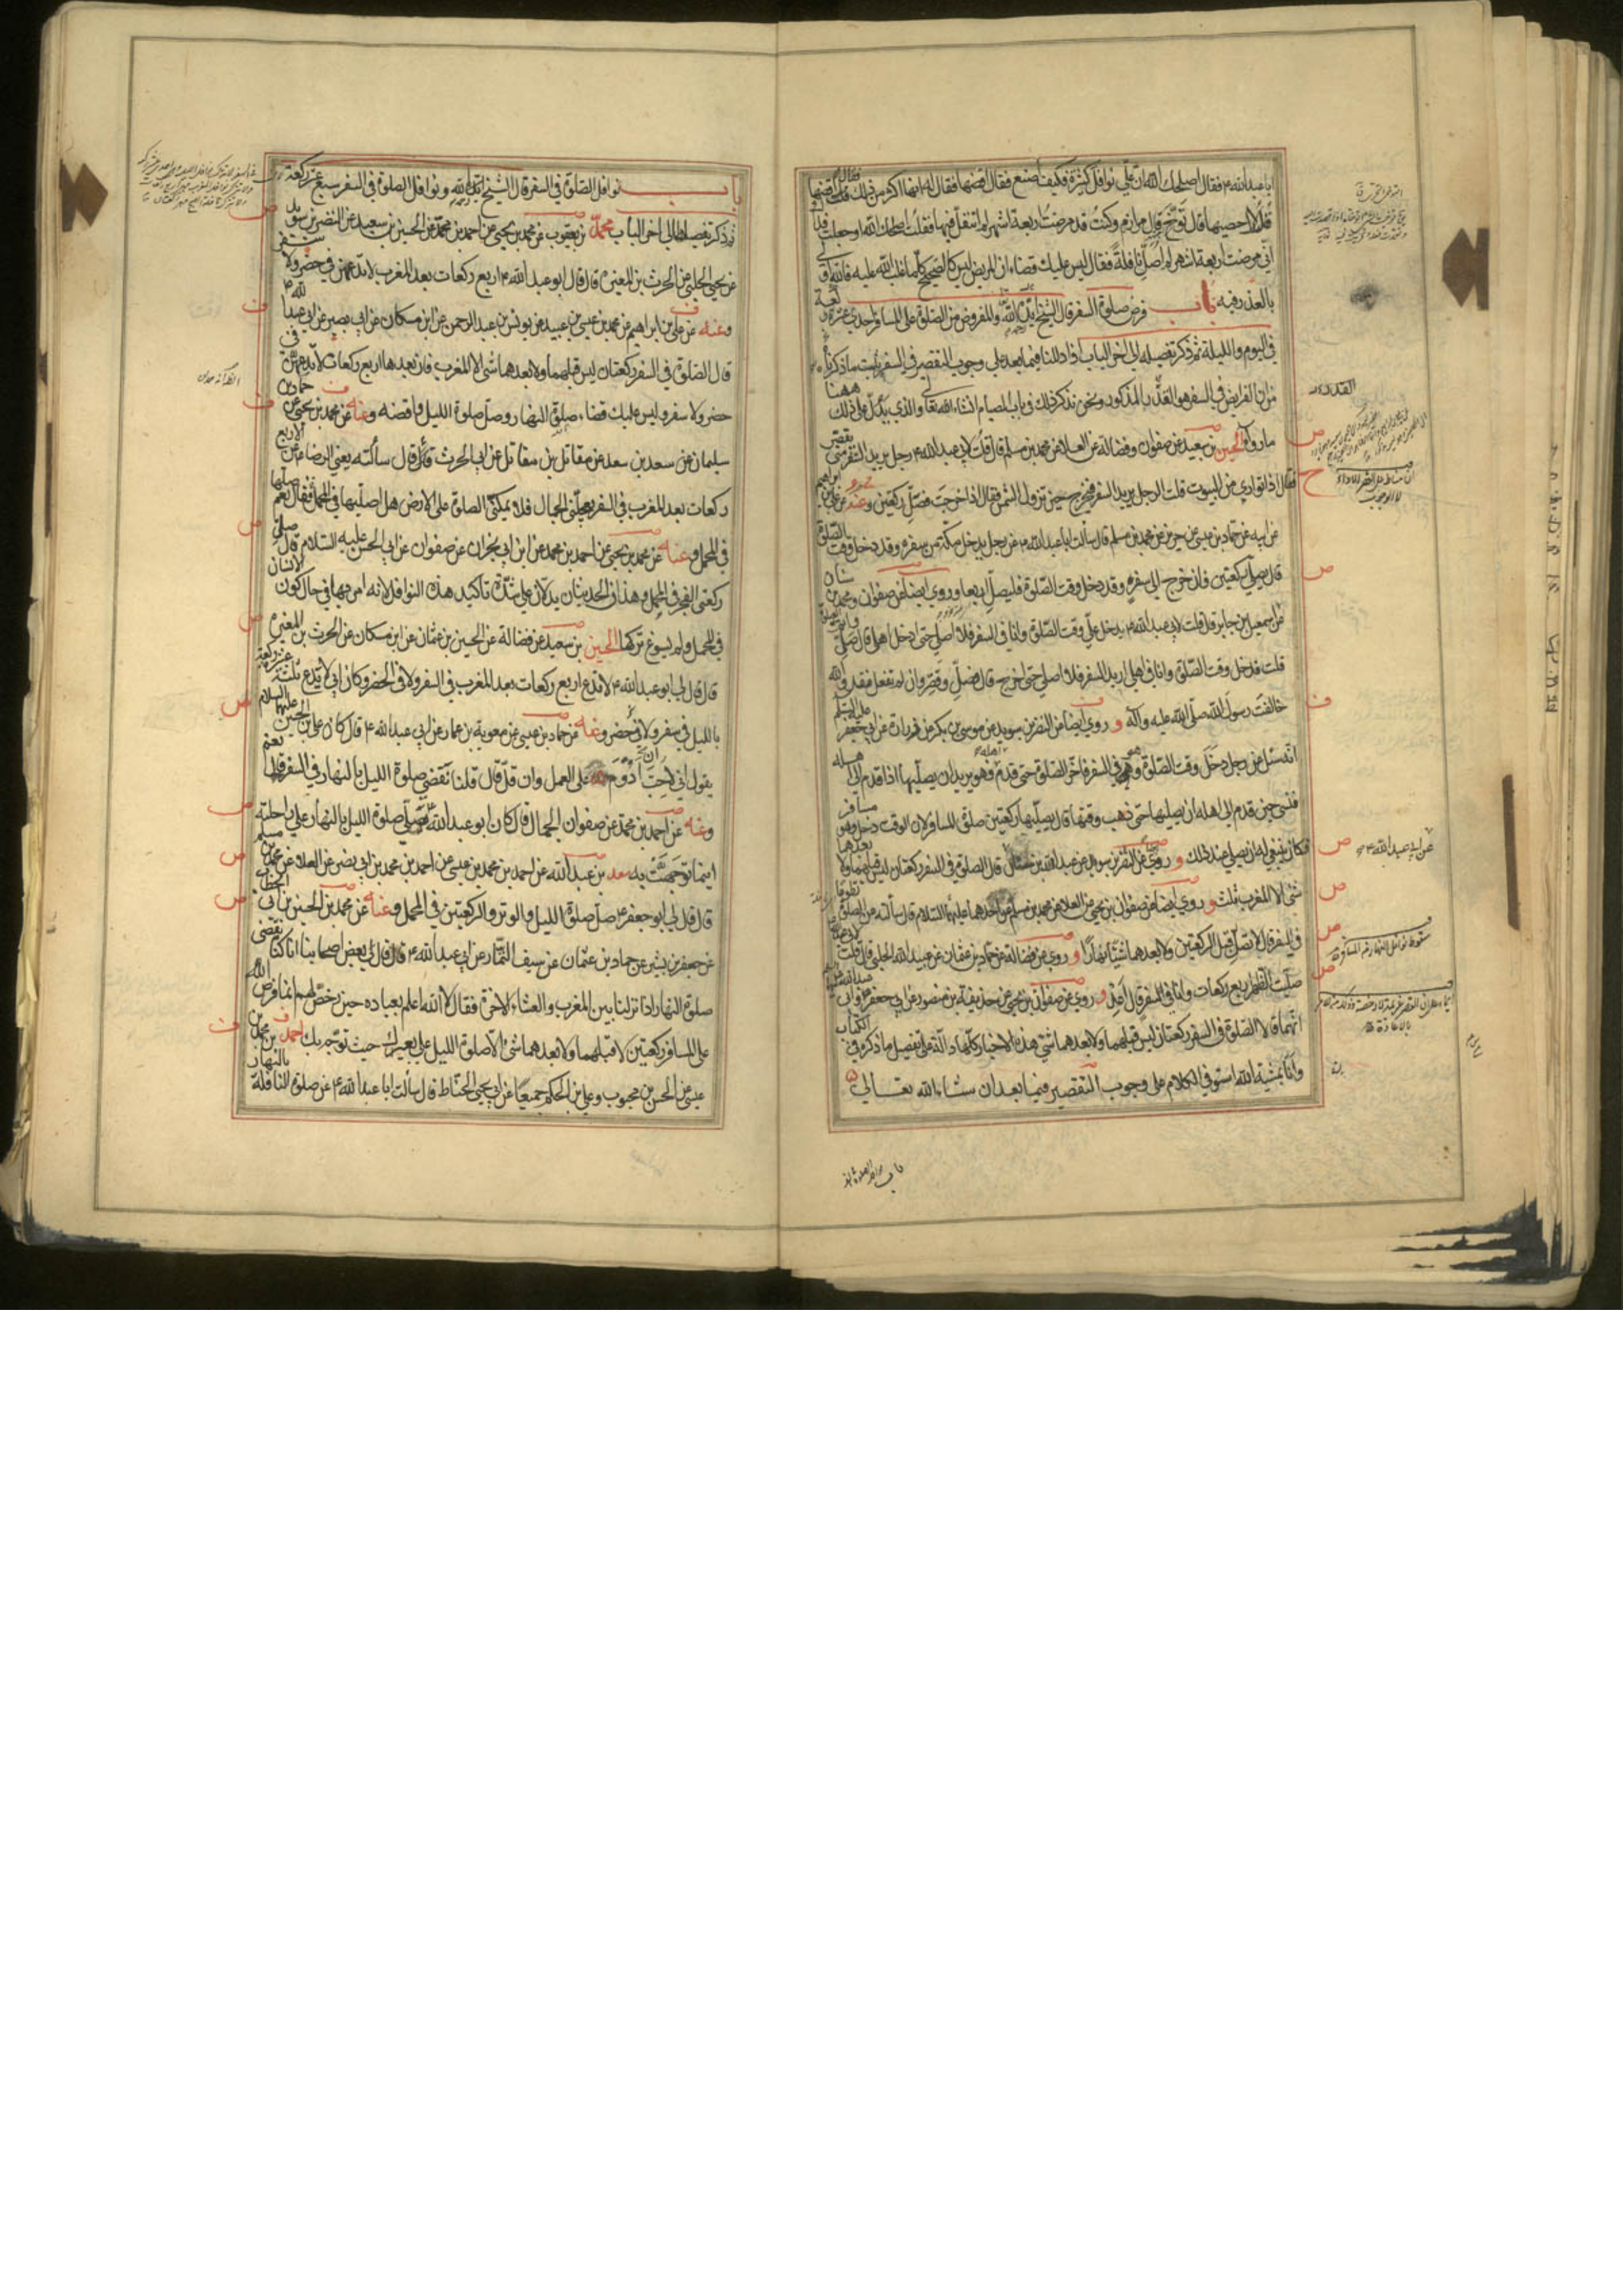 ابا عبد الله ع فقال اصلحك الله ان علي نوافل كثيرة فكيف اصنع فقال اقضها فقال له انها اكثر من ذلك قال اقضها
قلت لا احصيها قال توخ قال مرازم وكنت قد مرضت اربعة اشهر لم اتنفل فيها فقلت اصلحك الله وجعلت فداك
اني مرضت اربعة اشهر لم اصل نافلة فقال ليس عليك قضاء ان المريض ليس كالصحيح كلما غلب الله عليه فالله اولى
بالعذر فيه باب فرض صلوة السفر قال الشيخ ايده الله والمفروض من الصلوة على المسافر احدى عشرة ركعة
في اليوم والليلة ثم ذكر تفصيله الى اخر الباب اذا دللنا فيما بعد على وجوب التقصير في السفر ثبت ما ذكرناه
من ان الفرايض في السفر هو القدر المذكور ونحن نذكر ذلك في باب الصيام انشاء الله تعالى والذي يدل على ذلك ههنا
ما رواه الحسين بن سعيد عن صفوان وفضالة عن العلاء عن محمد بن مسلم قال قلت لابي عبد الله ع رجل يريد السفر متى يقصر
فقال اذا توارى من البيوت قلت الرجل يريد السفر فيخرج حين تزول الشمس فقال اذا خرجت فصل ركعتين وعنه عن علي بن ابراهيم
عن ابيه عن حماد بن عيسى عن حريز عن محمد بن مسلم قال سألت ابا عبد الله ع عن رجل يدخل مكة من سفره وقد دخل وقت الصلوة
قال يصلي ركعتين فان خرج الى سفره وقد دخل وقت الصلوة فليصل اربعا وروى ايضا عن صفوان ومحمد بن سنان
عن اسمعيل بن جابر قال قلت لابي عبد الله ع يدخل علي وقت الصلوة وانا في السفر فلا اصلي حتى ادخل اهلي قال صل واتم الصلوة
قلت فدخل وقت الصلوة وانا في اهلي اريد السفر فلا اصلي حتى اخرج قال فصل وقصر وان لم تفعل فقد والله
خالفت رسول الله صلى الله عليه وآله و روى ايضا عن النضر بن سويد عن موسى بن بكر عن زرارة عن ابي جعفر عليه السلم
انه سئل عن رجل دخل وقت الصلوة وهو في السفر فاخر الصلوة حتى قدم فهو يريد ان يصليها اذا قدم الى اهله
فنسي حين قدم الى اهله ان يصليها حتى ذهب وقتها قال يصليها ركعتين صلوة المسافر لان الوقت دخل وهو مسافر
فكان ينبغي له ان يصلي عند ذلك و روى عن النضر بن سويد عن عبد الله بن سنان قال الصلوة في السفر ركعتان ليس قبلهما ولا بعدهما
شئ الا المغرب ثلث و روى ايضا عن صفوان بن يحيى عن العلاء عن محمد بن مسلم عن احدهما عليهما السلام قال سألته عن الصلوة تطوعا
في السفر قال لا تصل قبل الركعتين ولا بعدهما شيئا نهارا و روى عن فضالة عن حماد بن عثمان عن عبيد الله الحلبي قال قلت
صليت الظهر اربع ركعات وانا في السفر قال اعد و روى عن صفوان بن يحيى عن حذيفة بن منصور عن ابي جعفر وابي عبد الله
انهما قالا الصلوة في السفر ركعتان ليس قبلهما ولا بعدهما شئ هذه الاخبار كلها دالة على تفصيل ما ذكره في الكتاب
وانا بمشية الله استوفي الكلام على وجوب التقصير فيما بعد ان شاء الله تعالى
عن ابي عبد الله ع
سقوط نوافل النهار عن المسافر
باب نوافل الصلوة في السفر قال الشيخ ايده الله ونوافل الصلوة في السفر سبع عشرة ركعة
ثم ذكر تفصيلها الى اخر الباب محمد بن يعقوب عن محمد بن يحيى عن احمد بن محمد عن الحسين بن سعيد عن النضر بن سويد
عن يحيى الحلبي عن الحرث بن المغيرة قال قال ابو عبد الله ع اربع ركعات بعد المغرب لا تدعهن في حضر ولا سفر
وعنه عن علي بن ابراهيم عن محمد بن عيسى بن عبيد عن يونس بن عبد الرحمن عن ابن مسكان عن ابي بصير عن ابي عبد الله ع
قال الصلوة في السفر ركعتان ليس قبلهما ولا بعدهما شئ الا المغرب فان بعدها اربع ركعات لا تدعهن في
حضر ولا سفر وليس عليك قضاء صلوة النهار وصل صلوة الليل واقضه وعنه عن محمد بن يحيى عن حمدان بن
سليمان عن سعد بن سعد عن مقاتل بن مقاتل عن ابي الحرث قال سألته يعني الرضا ع عن الاربع
ركعات بعد المغرب في السفر يعجلني الجمال فلا يمكنني الصلوة على الارض هل اصليها في المحمل فقال نعم صلها
في المحمل وعنه عن محمد بن يحيى عن احمد بن محمد عن ابن ابي نجران عن صفوان عن ابي الحسن عليه السلام قال صل
ركعتي الفجر في المحمل وهذان الحديثان يدلان على شدة تأكيد هذه النوافل لانه امر بهما في حال كون الانسان
في المحمل ولم يسوغ تركها الحسين بن سعيد عن فضالة عن الحسين بن عثمان عن ابن مسكان عن الحرث بن المغيرة
قال قال لي ابو عبد الله ع لا تدع اربع ركعات بعد المغرب في السفر ولا في الحضر وكان ابي لا يدع ثلث عشرة ركعة
بالليل في سفر ولا في حضر وعنه عن حماد بن عيسى عن معوية بن عمار عن ابي عبد الله ع قال كان علي بن الحسين عليهما السلام
يقول اني لاحب ان ادوم على العمل وان قل قال قلنا نقضي صلوة الليل بالنهار في السفر قال نعم
وعنه عن احمد بن محمد عن صفوان الجمال قال كان ابو عبد الله ع يصلي صلوة الليل بالنهار على راحلته
اينما توجهت به سعد بن عبد الله عن احمد بن محمد بن عيسى عن احمد بن محمد بن ابي نصر عن العلاء عن محمد بن مسلم
قال قال لي ابو جعفر ع صل صلوة الليل والوتر والركعتين في المحمل وعنه عن محمد بن الحسين بن ابي الخطاب
عن جعفر بن بشير عن حماد بن عثمان عن سيف التمار عن ابي عبد الله ع قال قال له بعض اصحابنا انا كنا نقضي
صلوة النهار اذا نزلنا بين المغرب والعشاء الاخرة فقال لا الله اعلم بعباده حين رخص لهم انما فرض الله
على المسافر ركعتين لا قبلهما ولا بعدهما شئ الا صلوة الليل على بعيرك حيث توجه بك احمد بن محمد بن
عيسى عن الحسن بن محبوب وعلي بن الحكم جميعا عن ابي يحيى الحناط قال سألت ابا عبد الله ع عن صلوة النافلة بالنهار